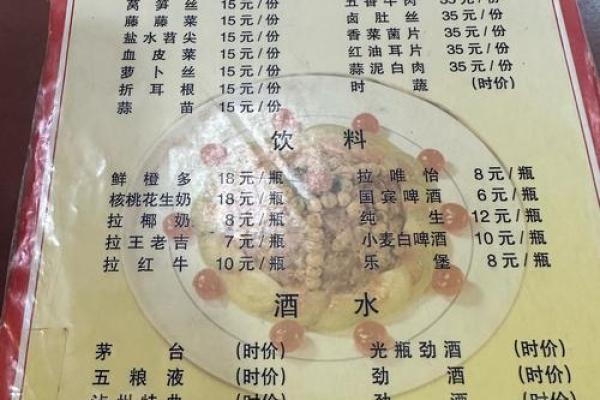 莴笋丝 15元/份 五香牛肉 35元/份
藤藤菜 15元/份 卤肚丝 35元/份
盐水苕尖 15元/份 香菜菌片 35元/份
血皮菜 15元/份 红油耳片 35元/份
萝卜丝 15元/份 蒜泥白肉 35元/份
折耳根 15元/份 时蔬 (时价)
蒜苗 15元/份
饮料
鲜橙多 18元/瓶 拉唯怡 8元/瓶
核桃花生奶 18元/瓶 国宾啤酒 6元/瓶
拉椰奶 8元/瓶 纯生 12元/瓶
拉王老吉 7元/瓶 小麦白啤酒 10元/瓶
拉红牛 10元/瓶 乐堡 8元/瓶
酒水
茅台 (时价) 光瓶劲酒 (时价)
五粮液 (时价) 劲酒 (时价)
泸州特曲 (时价) (时价)